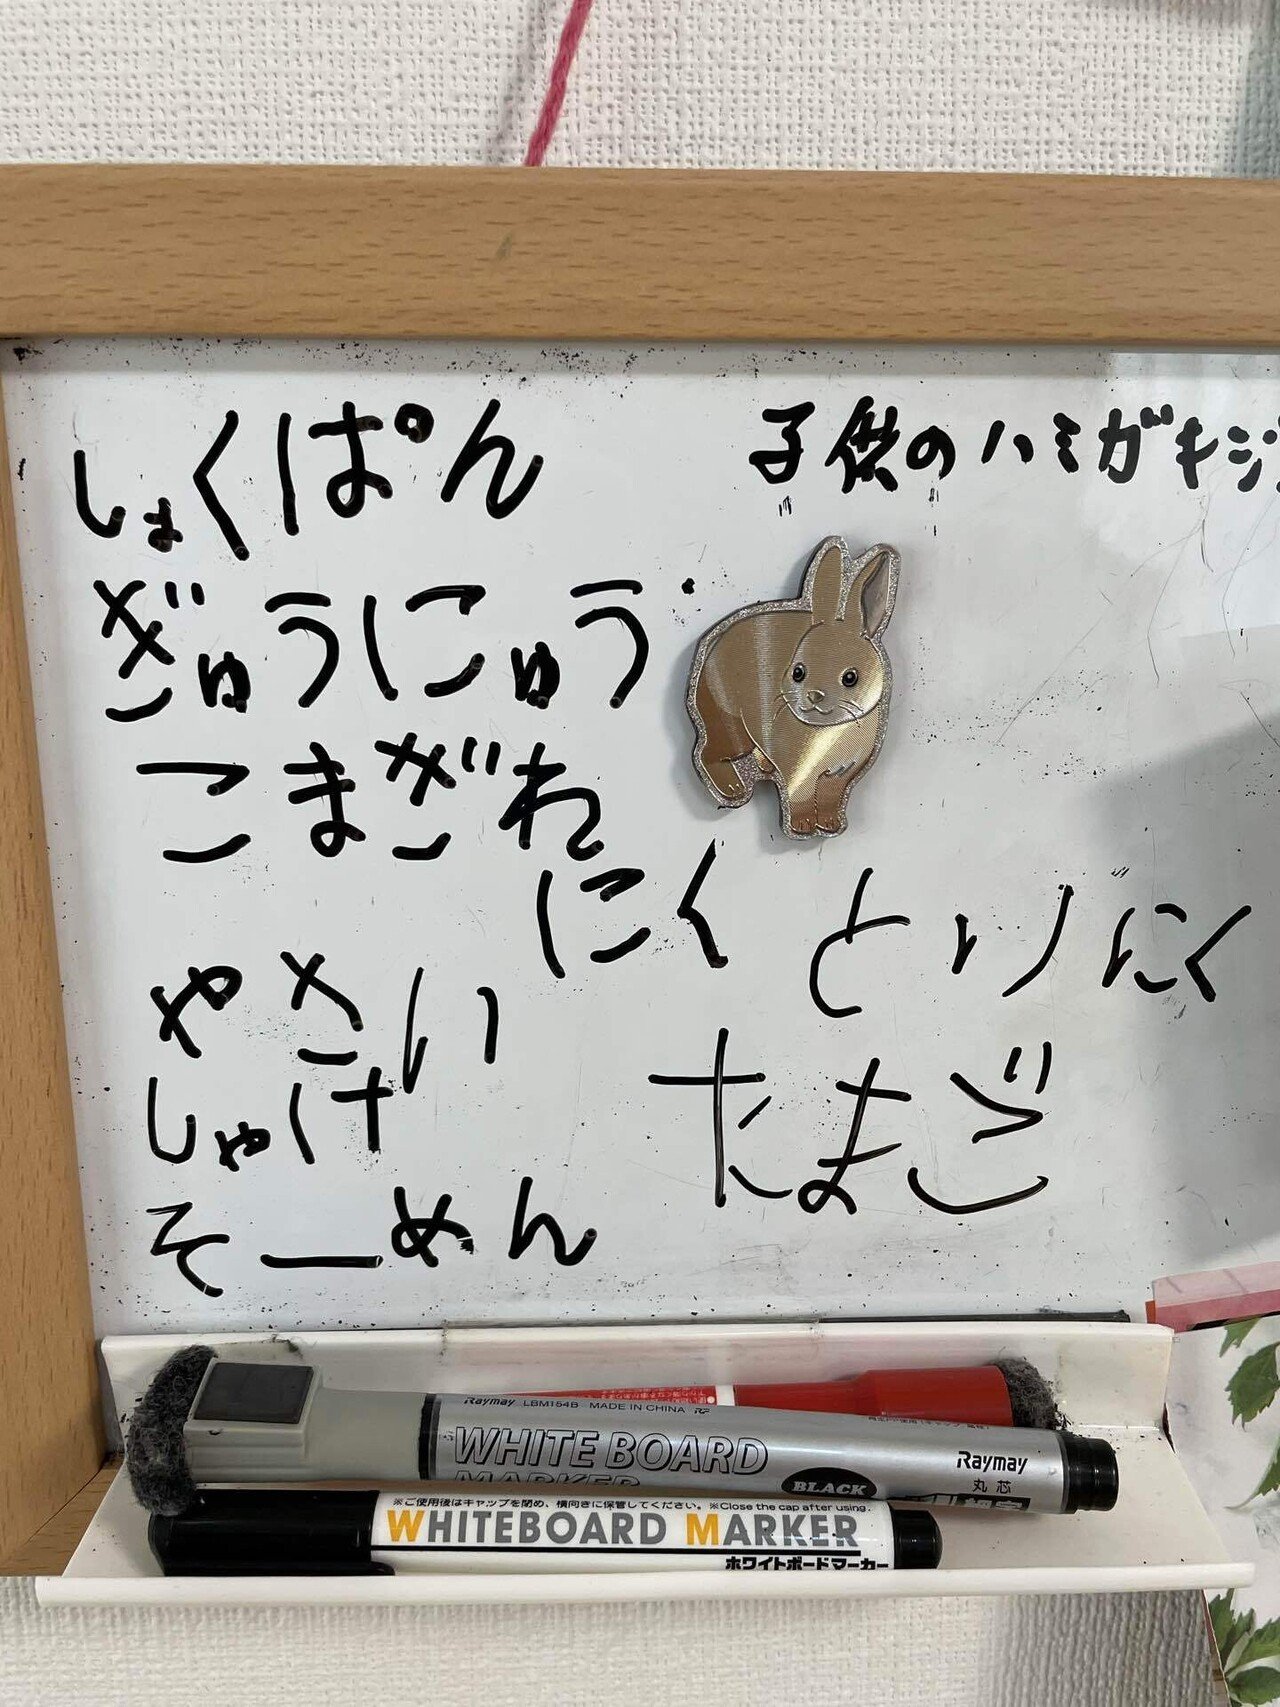 しょくぱん
子供のハミガキジ
ぎゅうにゅう
こまぎれ
にく
とりにく
やさい
しゃけ
たまご
そーめん
Raymay LBM154B MADE IN CHINA
WHITE BOARD
MARKER
BLACK
Raymay
丸芯
※ご使用後はキャップを閉め、横向きに保管してください。※Close the cap after using.
WHITEBOARD MARKER
ホワイトボードマーカー